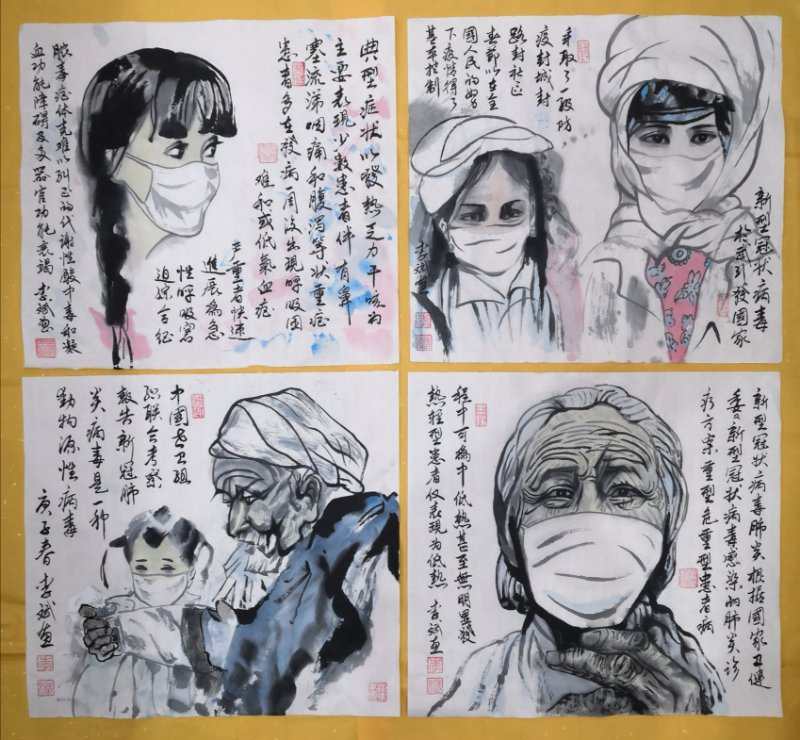 典型症状以發热乏力干咳为
主要表现少數患者伴有鼻
塞流涕咽痛和腹泻等状重症
患者多在發病一周後出现呼吸困
难和或低氧血症
严重者快速
進展為急
性呼吸窘
迫综合征
脓毒症休克难以纠正的代謝性酸中毒和凝
血功能障碍及多器官功能衰竭 李斌画
新型冠状病毒
於武引發國家
采取了一级防
疫封城封
路封社区
春節以在全
國人民的努
下疫情得了
基本控制
李斌画
中國世卫组
织联合考察
報告新冠肺
炎病毒是一种
動物源性病毒
庚子春 李斌画
新型冠状病毒肺炎根据國家卫健
委新型冠状病毒感染的肺炎诊
疗方案重型危重型患者病
程中可為中低热甚至無明显發
热轻型患者仅表现为低热 李斌画